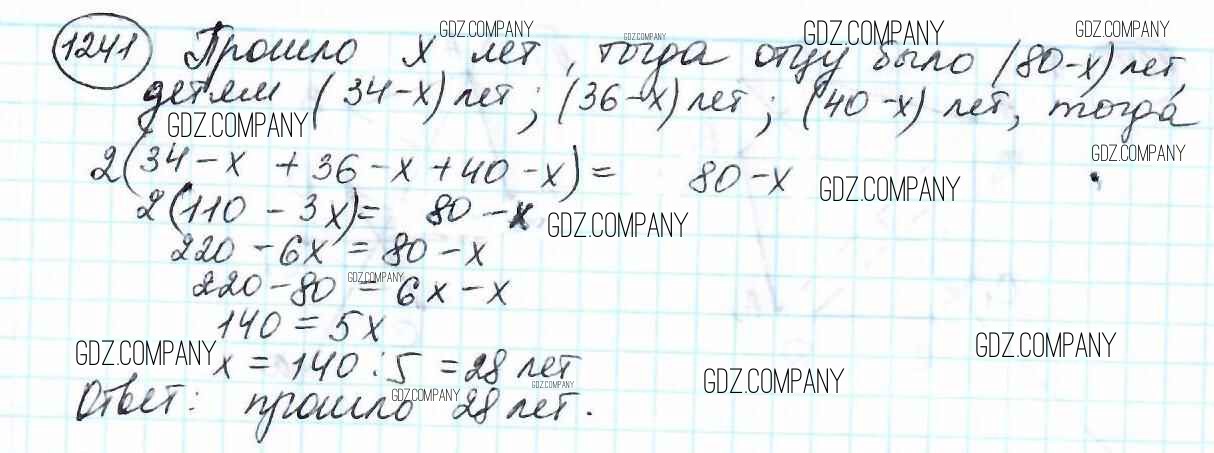 1241 Прошло х лет, тогда отцу было (80-х) лет,
детям (34-х) лет; (36-х) лет; (40-х) лет, тогда
2(34-х + 36-х + 40-х) = 80-х
2(110 - 3х) = 80-х
220 - 6х = 80-х
220-80 = 6х-х
140 = 5х
х = 140 : 5 = 28 лет
Ответ: прошло 28 лет.
GDZ.COMPANY
GDZ.COMPANY
GDZ.COMPANY
GDZ.COMPANY
GDZ.COMPANY
GDZ.COMPANY
GDZ.COMPANY
GDZ.COMPANY
GDZ.COMPANY
GDZ.COMPANY
GDZ.COMPANY
GDZ.COMPANY
GDZ.COMPANY
GDZ.COMPANY